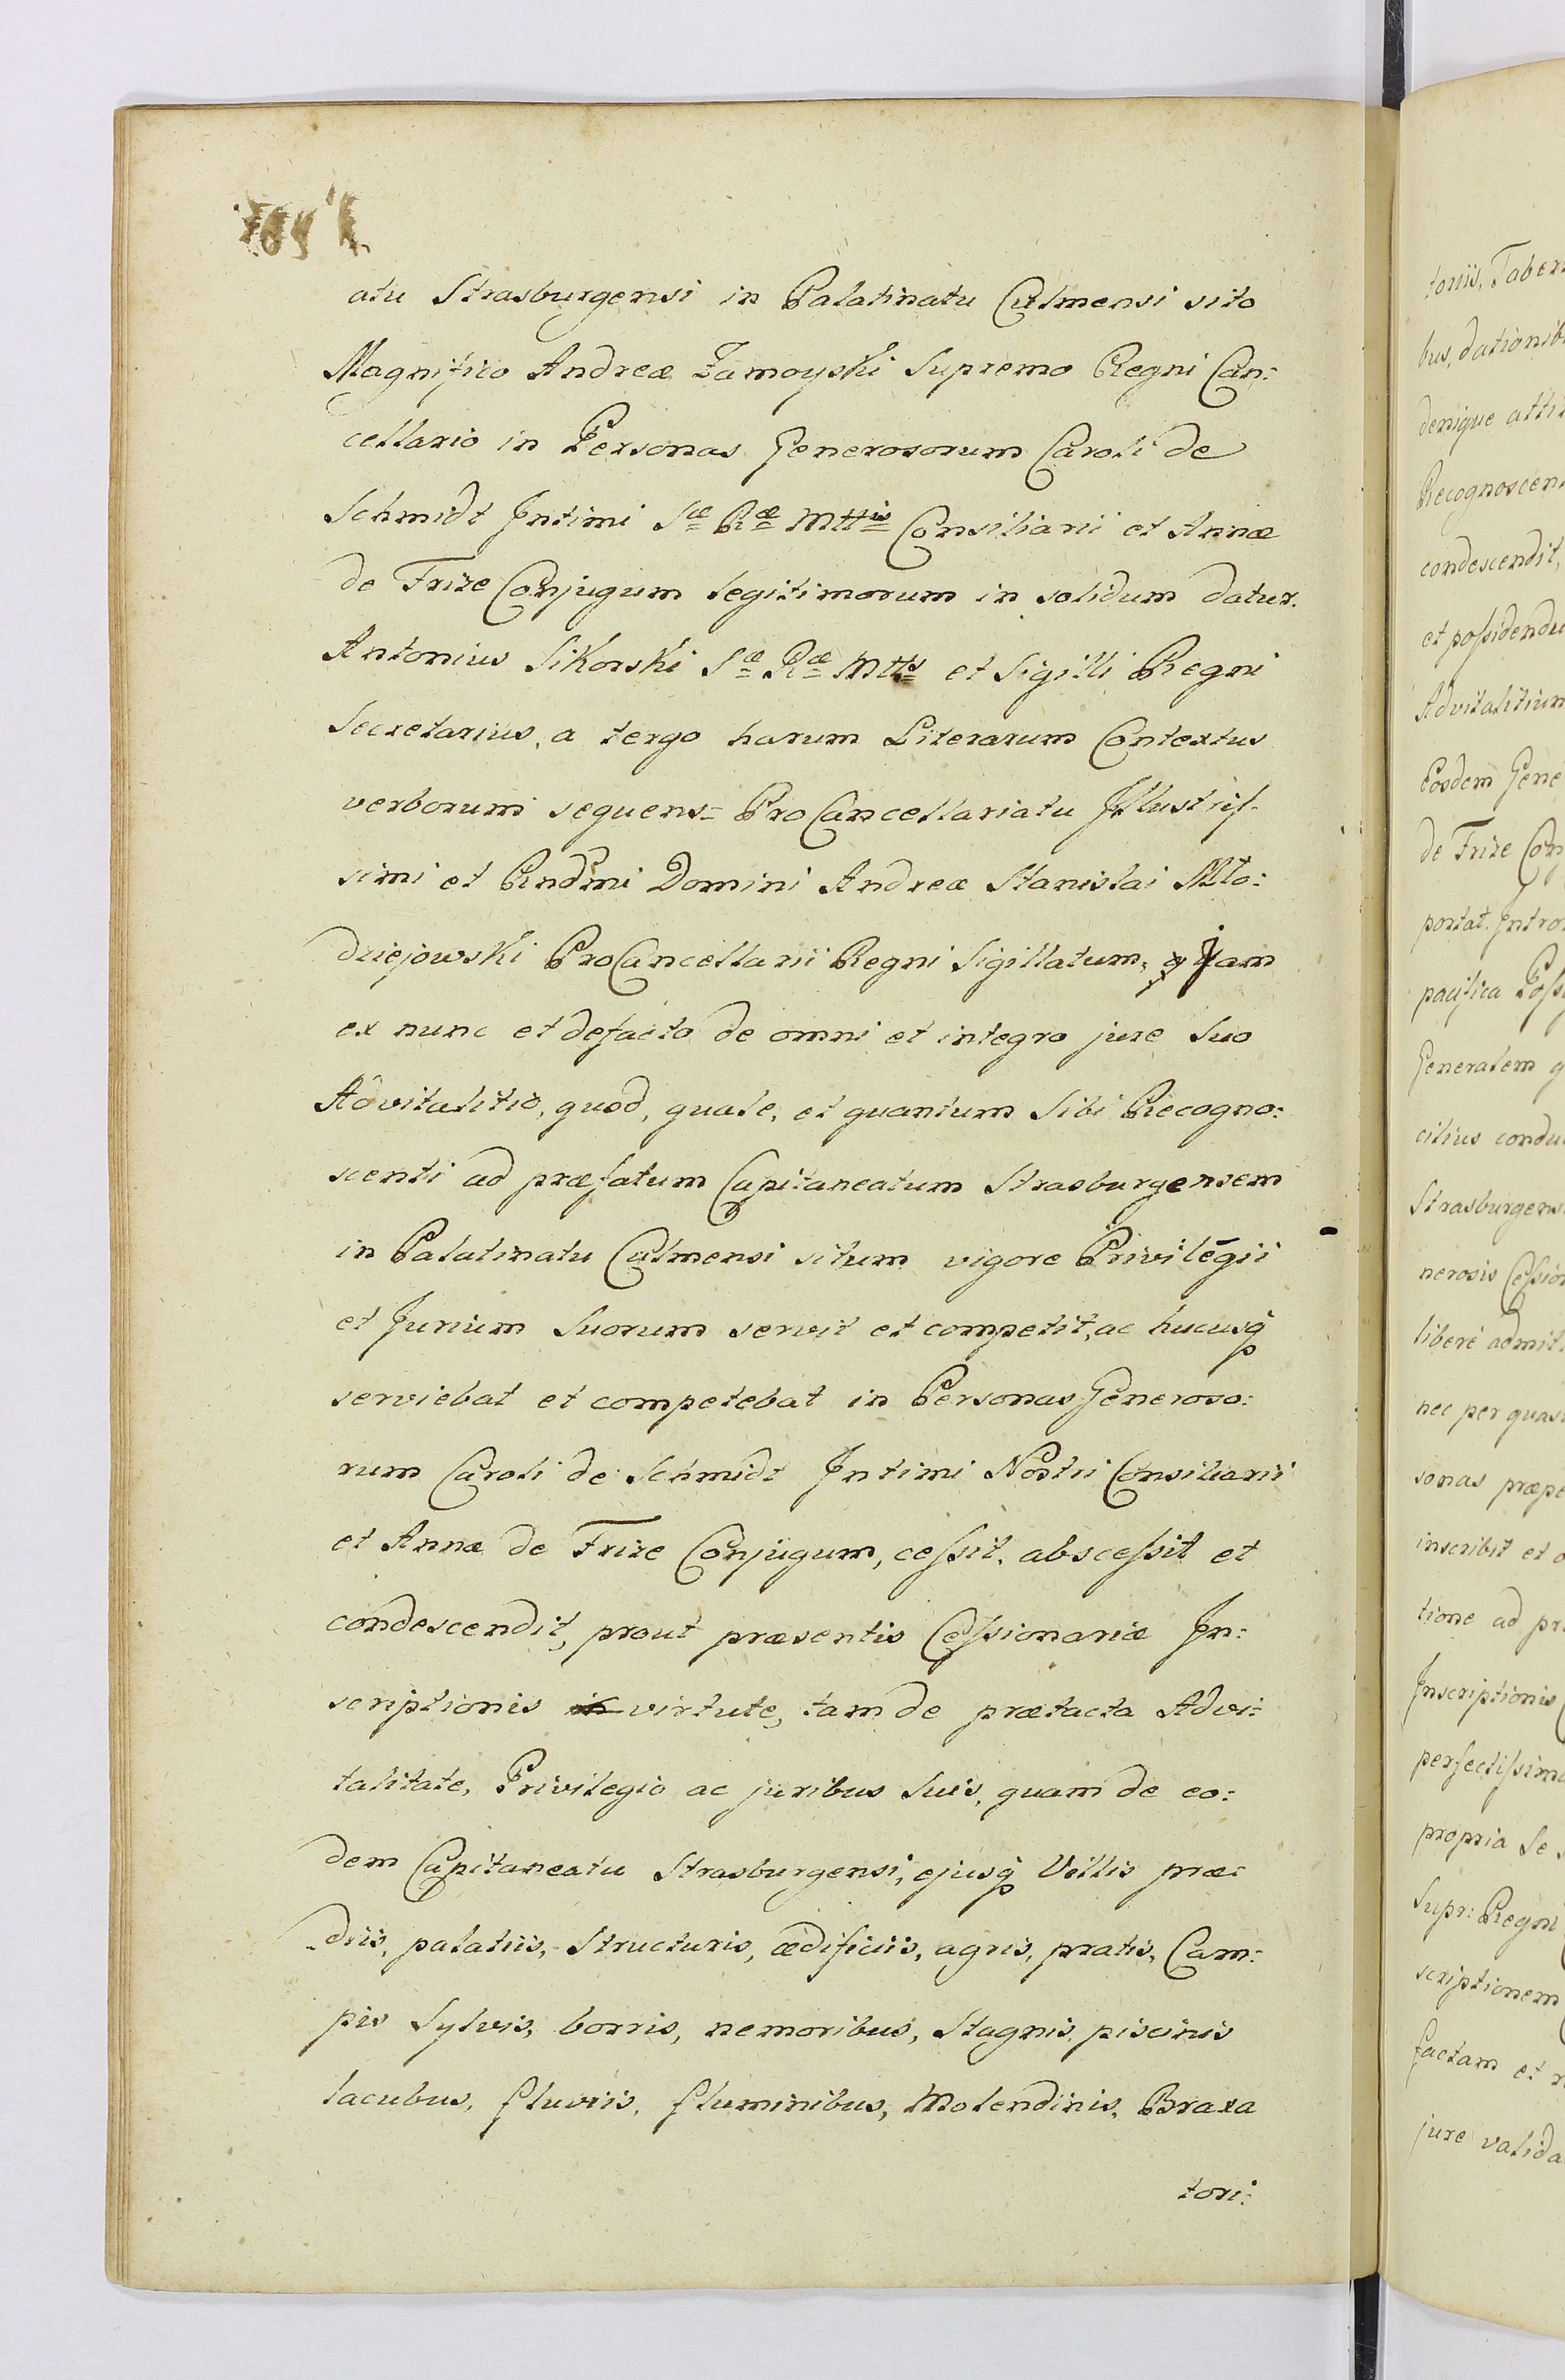 atu Strasburgensi in Palatinatu Culmensi sito
Magnifico Andreæ Zamoyski Supremo Regni Can:
cellario in Personas Generosorum Caroli de
Schmidt Intimi Sæ Ræ Mttis Consiliarii et Annæ
de Frize Conjugum legitimorum in solidum datur.
Antonius Sikorski Sæ Ræ Mtts et Sigilli Regni
Secretarius, a tergo harum Literarum Contextus
verborum sequens= Pro Cancellariatu Illustris-
simi et Rndmi Domini Andreæ Stanislai Mło:
dziejowski ProCancellarii Regni Sigillatum, jam
ex nunc et defacto de omni et integro jure Suo
Advitalitio, quod, quale, et quantum Sibi Recogno:
scenti ad præfatum Capitaneatum Strasburgensem
in Palatinatu Culmensi situm vigore Privilegii
et Jurium Suorum servit et competit, ac hucusq
serviebat et competebat in Personas Generoso:
rum Caroli de Schmidt Intimi Nostri Consiliarii
et Annæ de Frize Conjugum, cessit, abscessit et
condescendit, prout præsentis Cessionariæ In:
scriptionis virtute, tam de prætacta Advi:
talitate, Privilegio ac juribus Suis, quam de eo:
dem Capitaneatu Strasburgensi, ejusq Villis præ:
diis, palatiis, Structuris, ædificiis, agris, pratis, Cam:
pis Sylvis, borris, nemoribus, Stagnis, piscinis
lacubus, fluviis, fluminibus, Molendinis, Braxa
tori:
toriis, Tabern
bus, dationib
denique atti
Recognoscen
condescendit,
et possidendu
Advitalitium
Eosdem Gene
de Frize Con
portat. Intro
pacifica Poss
Generalem q
citius condu
Strasburgens
nerosis Cession
liberè admit
nec per quas
sonas præpe
inscribit et o
tione ad pr
Inscriptionis
perfectissima
propria Se
Supr: Regni
scriptionem
factam et r
jure valida